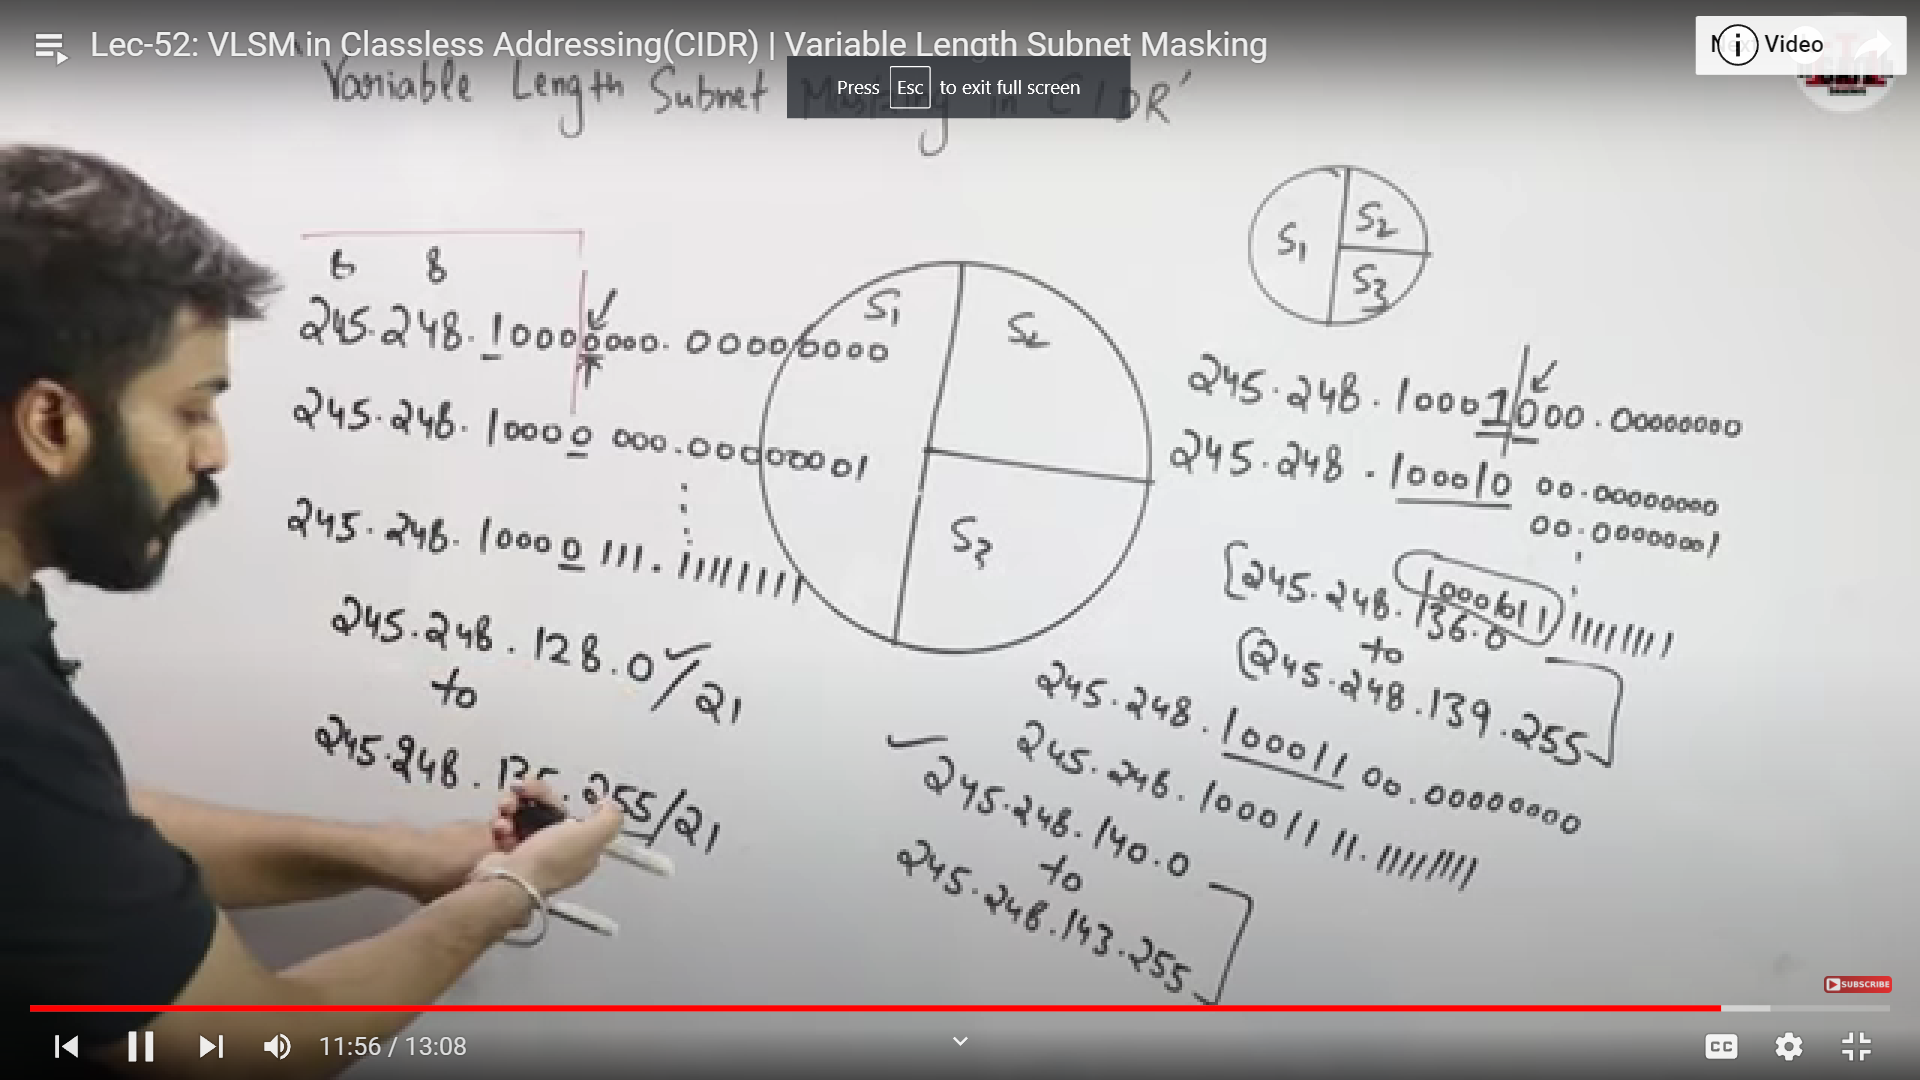 Lec-52: VLSM in Classless Addressing(CIDR) | Variable Length Subnet Masking
Video
Press Esc to exit full screen
Variable Length Subnet
S1 S2
S3
6 8
245.248.10000000.00000000
245.248.10000 000.00000001
245.248.10000 111.11111111
245.248.128.0/21
to
245.248.135.255/21
S1 S2
S3
245.248.10001000.00000000
245.248.100010 00.00000000
00.00000001
245.248.10001011 11111111
245.248.136.0
to
245.248.139.255
245.248.100011 00.00000000
245.248.100011 11.11111111
245.248.140.0
to
245.248.143.255
SUBSCRIBE
11:56 / 13:08
CC